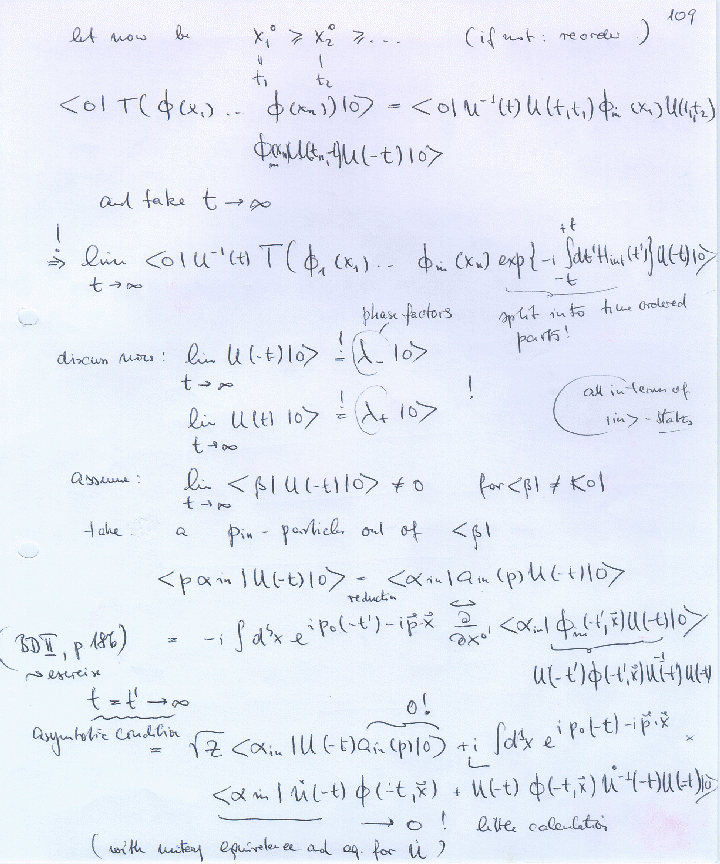 109
let now be x₁⁰ ≥ x₂⁰ ≥ ... (if not: reorder)
t₁ t₂
<0| T(ϕ(x₁) .. ϕ(xₙ))|0> = <0| U⁻¹(t) U(t,t₁) ϕᵢₙ(x₁) U(t₁,t₂)
ϕᵢₙ(xₙ) U(tₙ,-t) U(-t) |0>
and take t → ∞
! ⇒ lim t→∞ <0| U⁻¹(t) T(ϕ₁(x₁) .. ϕᵢₙ(xₙ) exp{-i ∫_{-t}^{+t} dt' Hᵢₙₜ(t')} U(-t)|0>
phase factors
split into time ordered
parts!
discuss now: lim t→∞ U(-t)|0> =! λ₋ |0>
lim t→∞ U(t) |0> =! λ₊ |0> !
all in terms of
|in> - states
assume: lim t→∞ <β| U(-t)|0> ≠ 0 for <β| ≠ <0|
take a pᵢₙ - particle out of <β|
<p α in | U(-t)|0> = <α in | aᵢₙ(p) U(-t)|0>
reduction
(BD II, p 186) = -i ∫ d³x e^{i p₀(-t') - i p⃗·x⃗} ∂↔/∂x⁰' <αᵢₙ| ϕᵢₙ(-t', x⃗) U(-t)|0>
→ exercise
U(-t') ϕ(-t', x⃗) U⁻¹(-t') U(-t)
t = t' → ∞
0!
asymptotic condition = √Z <αᵢₙ | U(-t) aᵢₙ(p)|0> + i ∫ d³x e^{i p₀(-t) - i p⃗·x⃗} ×
<α in | U̇(-t) ϕ(-t, x⃗) + U(-t) ϕ(-t, x⃗) U̇⁻¹(-t) U(-t)|0>
→ 0 ! little calculation
(with unitary equivalence and eq. for U̇)